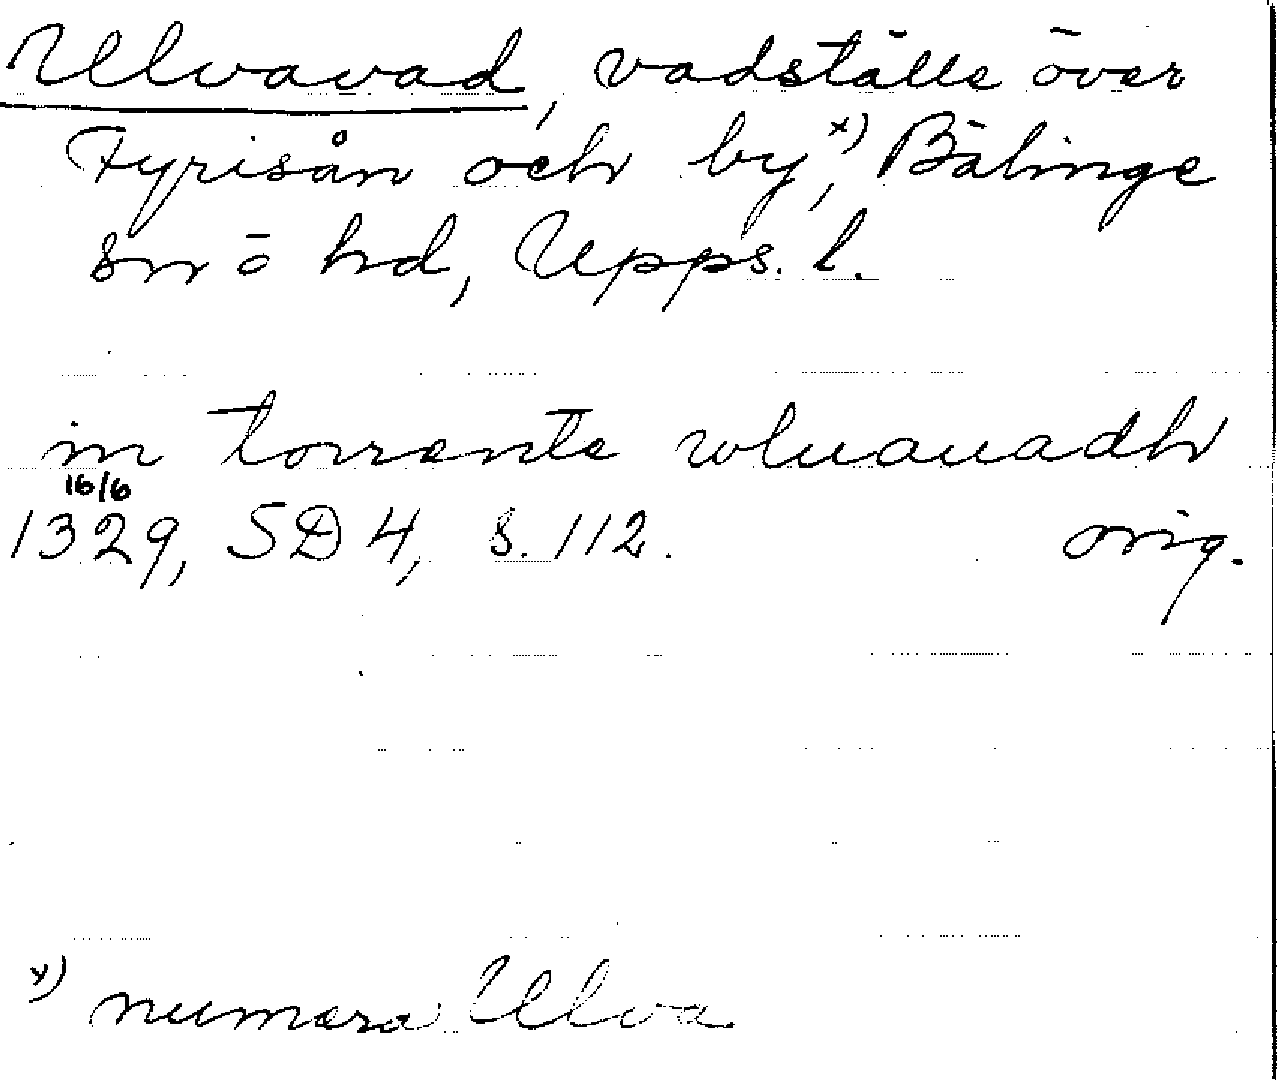 Ulvavad, vadställe över
Fyrisån och by,x) Bälinge
sn o hd, Upps. l.
in torrente wluauadh
16/6
1329, SD 4, s. 112. orig.
x) numera Ulva